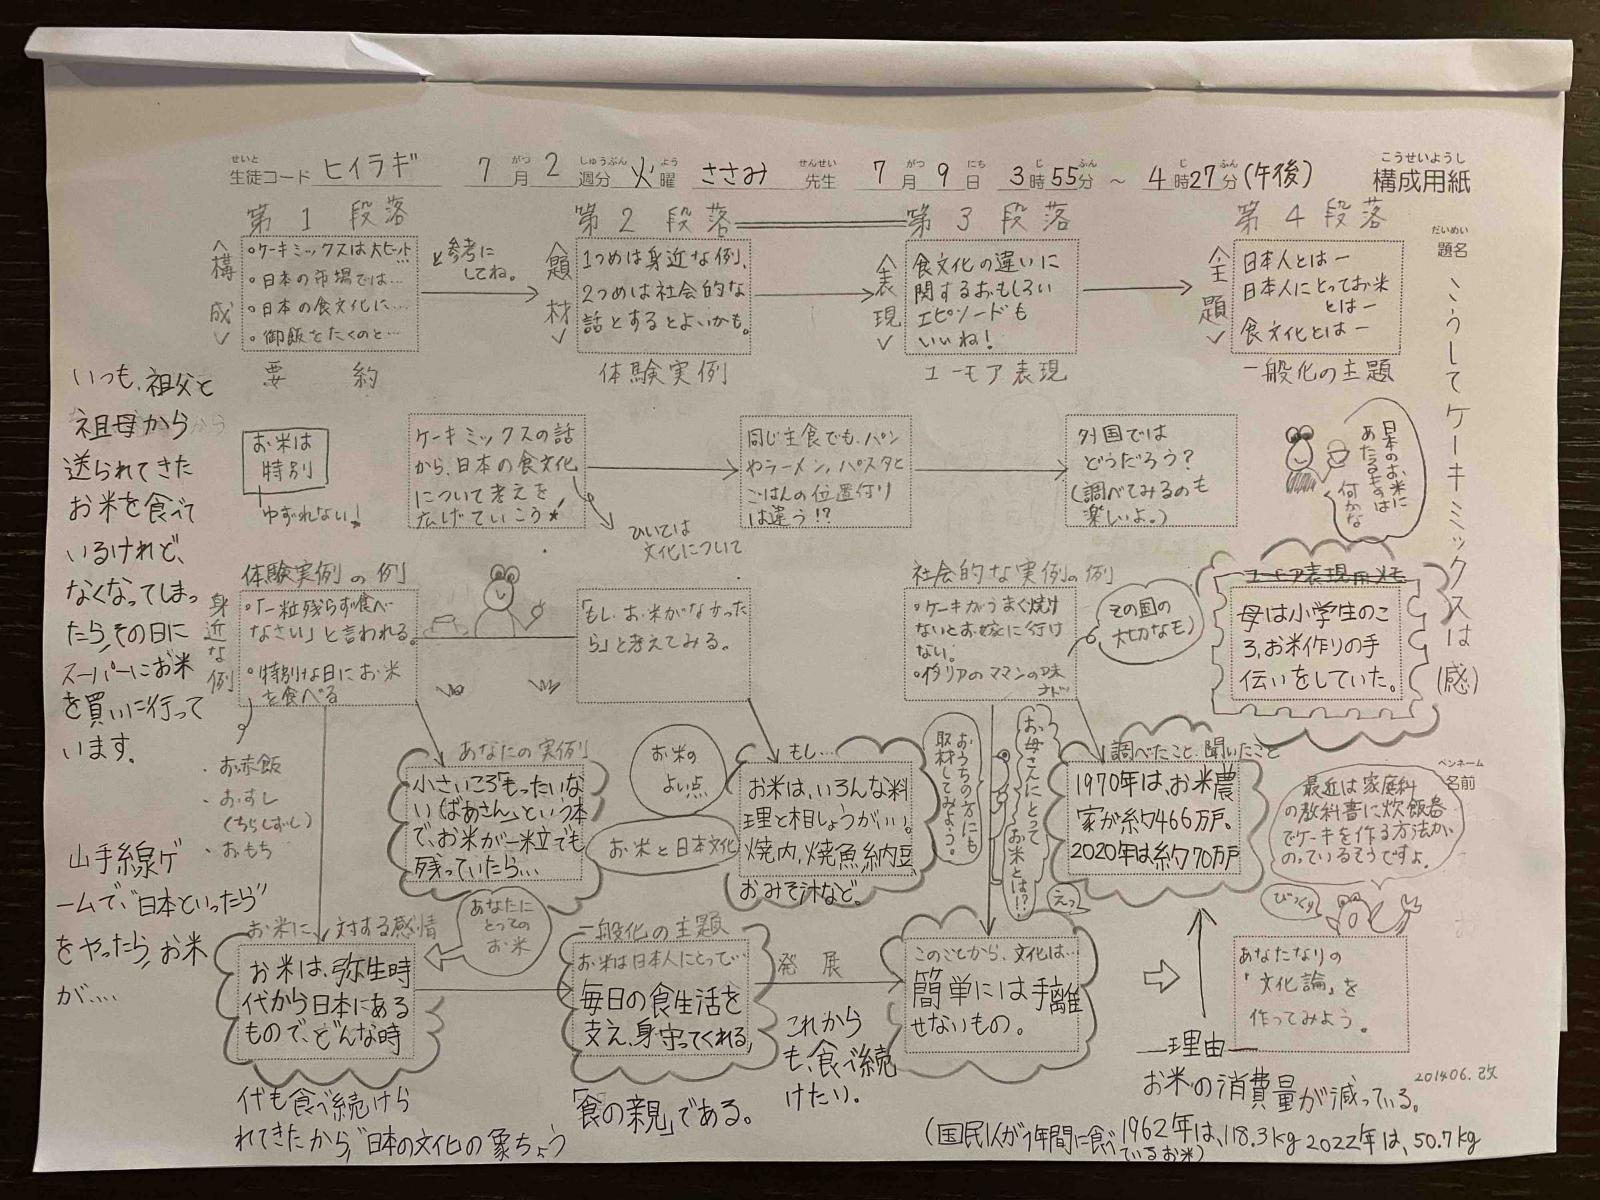 せいと がつ しゅうぶん よう せんせい がつ にち じ ふん じ ふん こうせいようし
生徒コード ヒイラギ 7月2週分 火曜 ささみ 先生 7月9日 3時55分 ～ 4時27分(午後) 構成用紙
第1段落 第2段落 第3段落 第4段落
だいめい
題名
こうしてケーキミックスは(感)
<構成>
・ケーキミックスは大ヒット
・日本の市場では…
・日本の食文化に…
・御飯をたくのと…
要約
と参考に
してね。
<題材>
1つめは身近な例、
2つめは社会的な
話とするとよいかも。
体験実例
<表現>
食文化の違いに
関するおもしろい
エピソードも
いいね!
ユーモア表現
<主題>
日本人とは―
日本人にとってお米
とは―
食文化とは―
一般化の主題
いつも、祖父と
祖母から
送られてきた
お米を食べて
いるけれど、
なくなってしまっ
たら、その日に
スーパーにお米
を買いに行って
います。
お米は
特別
ゆずれない!
ケーキミックスの話
から、日本の食文化
について考えを
広げていこう
ひいては
文化について
同じ主食でも、パン
やラーメン、パスタと
ごはんの位置付け
は違う!?
外国では
どうだろう?
(調べてみるのも
楽しいよ。)
日本のお米に
あたるものは
何かな
体験実例の例
身近な例
・「一粒残らず食べ
なさい」と言われる。
・特別な日にお米
を食べる
・お赤飯
・おすし
(ちらしずし)
・おもち
「もしお米がなかった
ら」と考えてみる。
社会的な実例の例
・ケーキがうまく焼け
ないとお嫁に行け
ない。
・イタリアのママンの味
など
その国の
大切なモノ
ユーモア表現用メモ
母は小学生のこ
ろ、お米作りの手
伝いをしていた。
あなたの実例
小さいころ「もったいな
い(ばあさん」という本
で、お米が一米立でも
残っていたら…
お米の
よい点
お米と日本文化
もし…
お米は、いろんな料
理と相しょうがいい。
焼肉、焼魚、納豆、
おみそ汁など。
おうちの方にも
取材してみよう。
お母さんにとって
お米とは!?
調べたこと、聞いたこと
1970年は、お米農
家が約466万戸。
2020年は約70万戸
ペンネーム
名前
最近は家庭科
の教科書に炊飯器
でケーキを作る方法が
のっているそうですよ。
えっ
びっくり
山手線ゲ
ームで、"日本といったら"
をやったら、お米
が….
お米に対する感情
お米は、弥生時
代から日本にある
もので、どんな時
代も食べ続けら
れてきたから、"日本の文化の象ちょう
あなたに
とっての
お米
一般化の主題
お米は日本人にとって…
毎日の食生活を
支え、身守ってくれる、
「食の親」である。
発展
これから
も、食べ続
けたい。
このことから、文化は…
簡単には手離
せないもの。
あなたなりの
「文化論」を
作ってみよう。
―理由―
お米の消費量が減っている。
201406.改
(国民1人が1年間に食べ
ているお米) 1962年は、118.3kg 2022年は、50.7kg